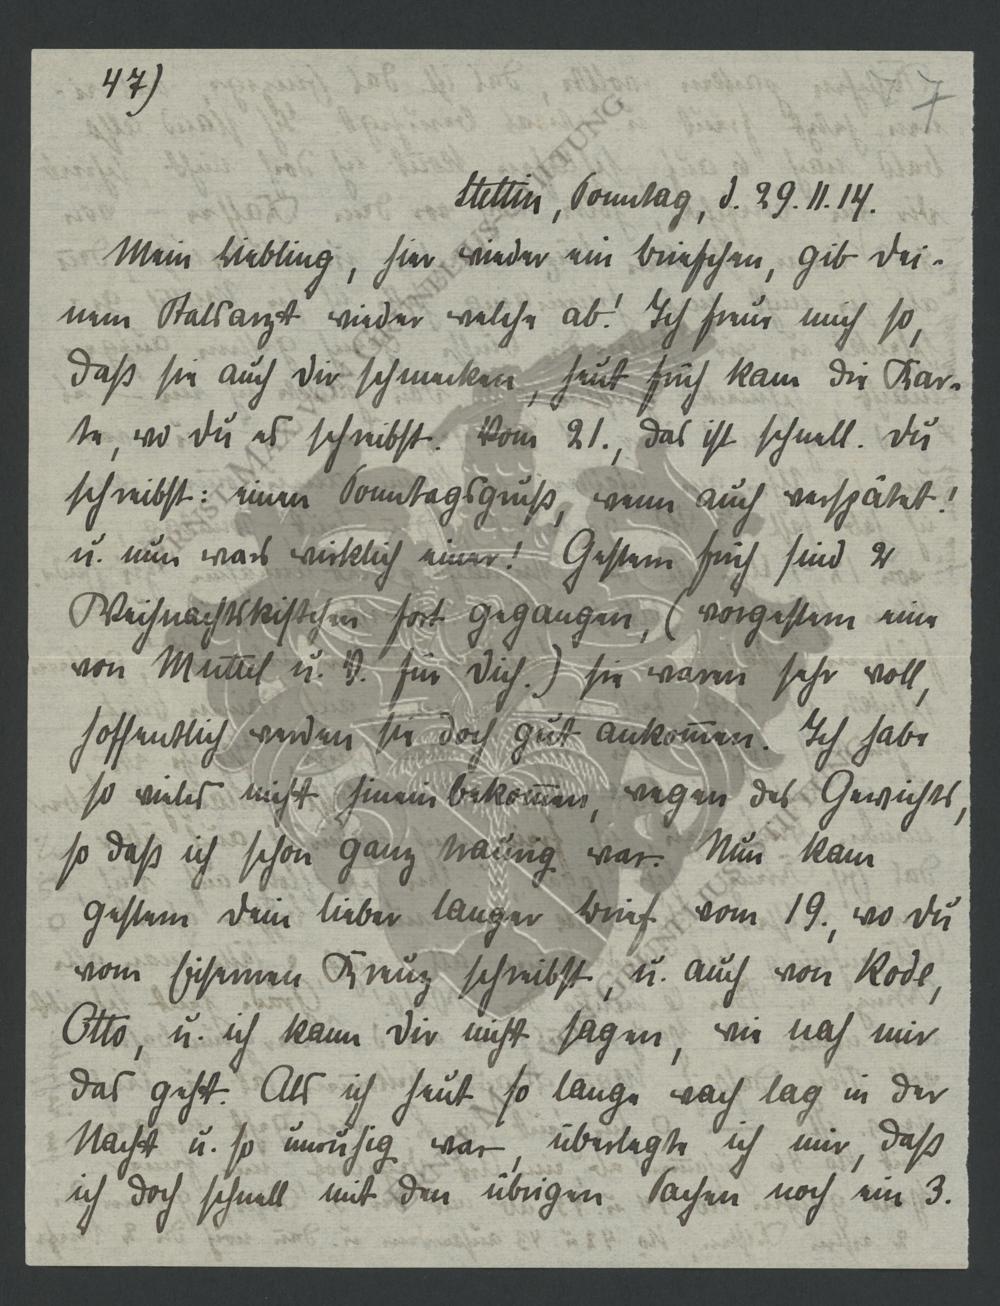 47)
7
Stettin, Sonntag, d. 29. 11. 14.
Mein Liebling, hier wieder ein Briefchen, gib dei-
nem Stabsarzt wieder welche ab! Ich freue mich so,
daß sie auch dir schmecken, heut früh kam die Kar-
te, wo du es schreibst. Vom 21., das ist schnell. Du
schreibst: einen Sonntagsgruß, wenn auch verspätet!
u. nun wars wirklich einer! Gestern früh sind 2
Weihnachtskistchen fort gegangen, (vorgestern eine
von Muttel u. V. für dich.) sie waren sehr voll,
hoffentlich werden sie doch gut ankom̅en. Ich habe
so vieles nicht hinein bekom̅en, wegen des Gewichts,
so daß ich schon ganz traurig war. Nun kam
gestern dein lieber langer Brief vom 19., wo du
vom Eisernen Kreuz schreibst, u. auch von
Otto, u. ich kann dir nicht sagen, wie nah mir
das geht. Als ich heut so lange wach lag in der
Nacht u. so unruhig war, überlegte ich mir, daß
ich doch schnell mit den übrigen Sachen noch ein 3.